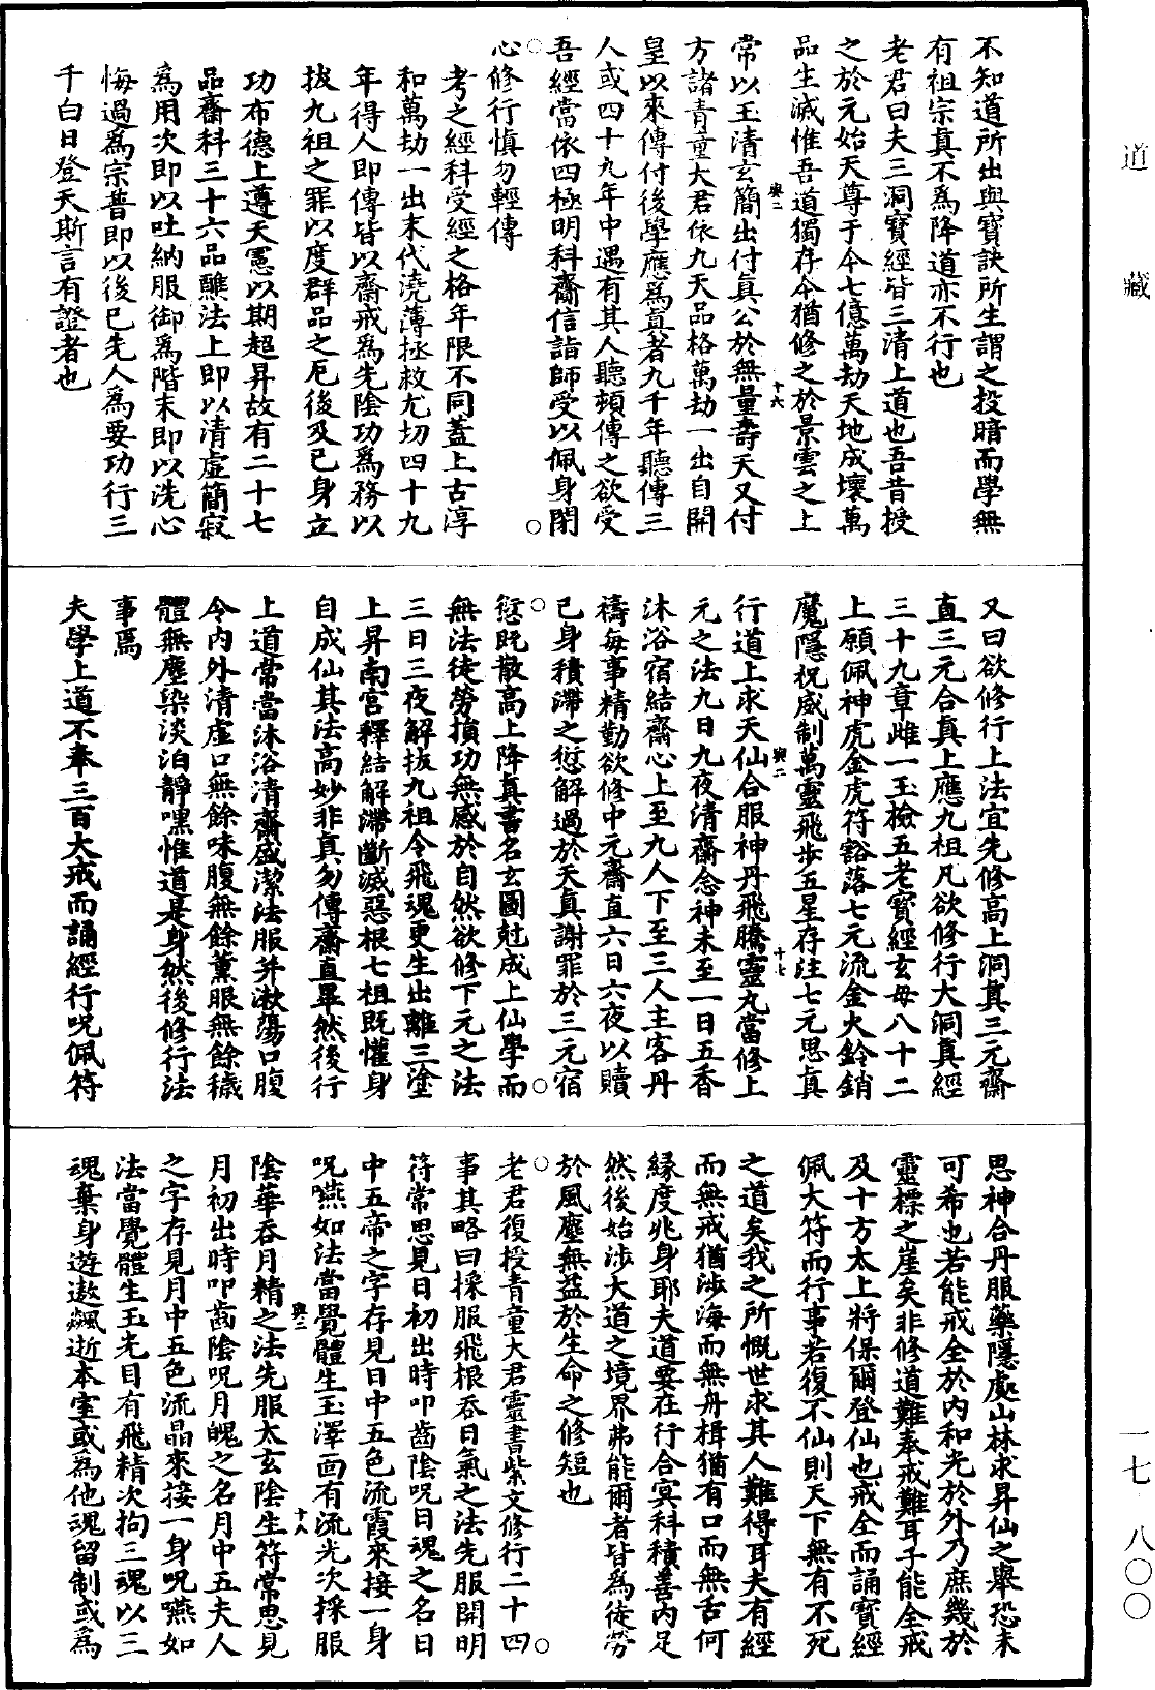 道藏
一七·八〇〇
不知道所出與寶訣所生謂之投暗而學無
有祖宗真不為降道亦不行也
老君曰夫三洞寶經皆三清上道也吾昔授
之於元始天尊于今七億萬劫天地成壞萬
品生滅惟吾道獨存今猶修之於景雲之上
與二 十六
常以玉清玄簡出付真公於無量壽天又付
方諸青童大君依九天品格萬劫一出自開
皇以來傳付後學應為真者九千年聽傳三
人或四十九年中遇有其人聽頓傳之欲受
吾經當依四極明科齋信詣師受以佩身閉
心修行慎勿輕傳
考之經科受經之格年限不同蓋上古淳
和萬劫一出末代澆薄拯救尤切四十九
年得人即傳皆以齋戒為先陰功為務以
拔九祖之罪以度群品之厄後及已身立
功布德上遵天憲以期超昇故有二十七
品齋科三十六品醮法上即以清虛簡寂
為用次即以吐納服御為階末即以洗心
悔過為宗普即以後己先人為要功行三
千白日登天斯言有證者也
又曰欲修行上法宜先修高上洞真三元齋
直三元合真上應九祖凡欲修行大洞真經
三十九章雌一玉檢五老寶經玄母八十二
上願佩神虎金虎符豁落七元流金火鈴銷
魔隱祝威制萬靈飛步五星存注七元思真
與二 十七
行道上求天仙合服神丹飛騰靈丸當修上
元之法九日九夜清齋念神未至一日五香
沐浴宿結齋心上至九人下至三人主客丹
禱每事精勤欲修中元齋直六日六夜以贖
己身積滯之愆解過於天真謝罪於三元宿
愆既散高上降真書名玄圖剋成上仙學而
無法徒勞損功無感於自然欲修下元之法
三日三夜解拔九祖令飛魂更生出離三塗
上昇南宮釋結解滯斷滅惡根七祖既懽身
自成仙其法高妙非真勿傳齋直畢然後行
上道常當沐浴清齋盛潔法服并漱蕩口腹
令內外清虛口無餘味腹無餘薰眼無餘穢
體無塵染淡泊靜嘿惟道是身然後修行法
事焉
夫學上道不奉三百大戒而誦經行呪佩符
思神合丹服藥隱處山林求昇仙之舉恐未
可希也若能戒全於內和光於外乃庶幾於
靈標之崖矣非修道難奉戒難耳子能全戒
及十方太上將保爾登仙也戒全而誦寶經
佩大符而行事若復不仙則天下無有不死
之道矣我之所慨世求其人難得耳夫有經
而無戒猶涉海而無舟楫猶有口而無舌何
緣度兆身耶夫道要在行合冥科積善內足
然後始涉大道之境界弗能爾者皆為徒勞
於風塵無益於生命之修短也
老君復授青童大君靈書紫文修行二十四
事其略曰採服飛根吞日氣之法先服開明
符常思見日初出時叩齒陰呪日魂之名日
中五帝之字存見日中五色流霞來接一身
呪嚥如法當覺體生玉澤面有流光次採服
與二 十八
陰華吞月精之法先服太玄陰生符常思見
月初出時叩齒陰呪月魄之名月中五夫人
之字存見月中五色流晶來接一身呪嚥如
法當覺體生玉光目有飛精次拘三魂以三
魂棄身遊遨飄逝本室或為他魂留制或為